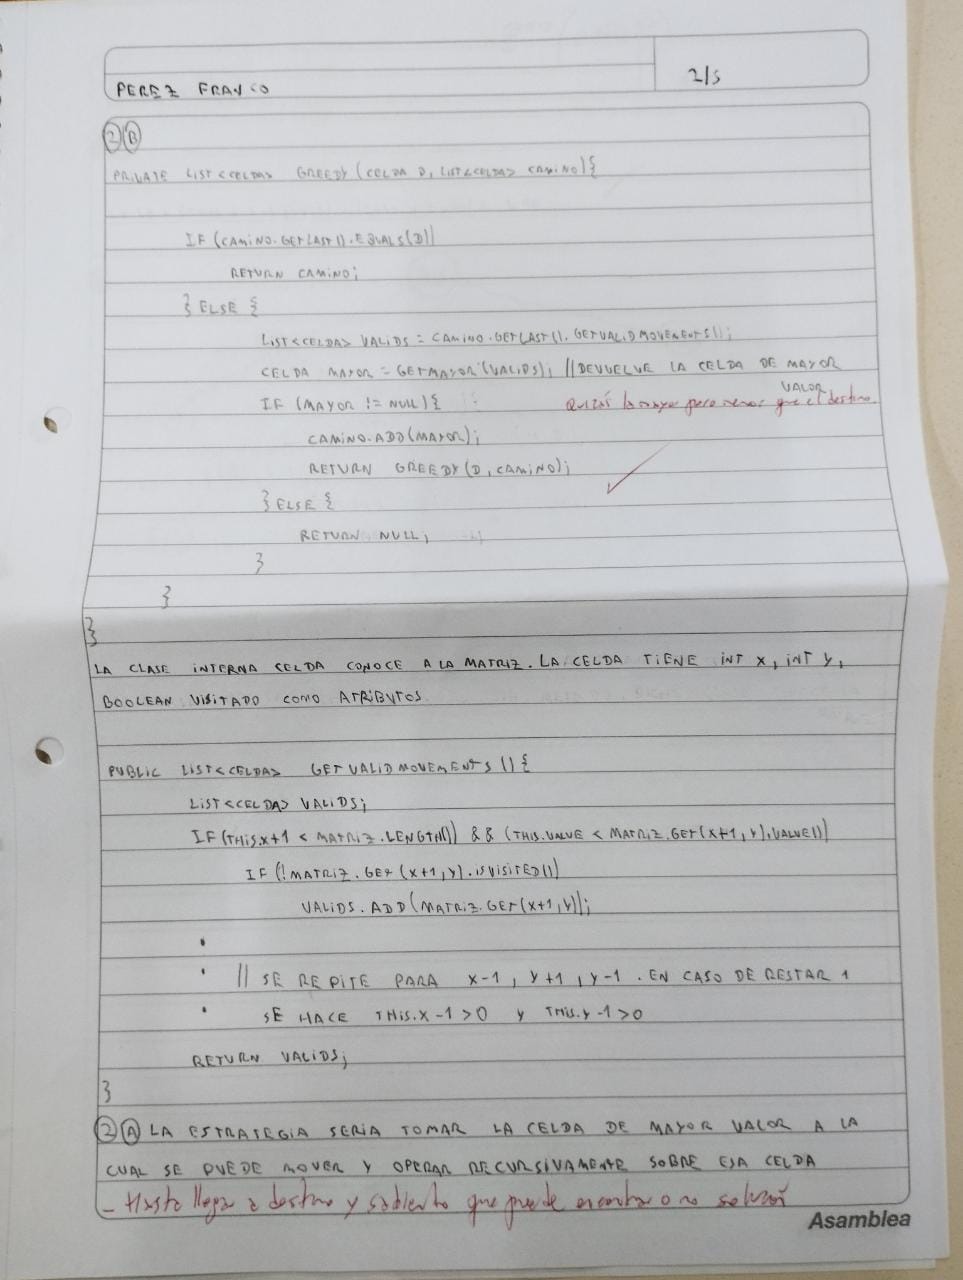 PEREZ FRANCO
2/5
2 B
PRIVATE LIST<CELDA> GREEDY (CELDA D, LIST<CELDA> CAMINO){
IF (CAMINO.GETLAST().EQUALS(D))
RETURN CAMINO;
} ELSE {
LIST<CELDA> VALIDS = CAMINO.GETLAST().GETVALIDMOVEMENTS();
CELDA MAYOR = GETMAYOR(VALIDS); //DEVUELVE LA CELDA DE MAYOR
VALOR
IF (MAYOR != NULL){
Quizás la mayor pero menos que el destino.
CAMINO.ADD(MAYOR);
RETURN GREEDY(D, CAMINO);
} ELSE {
RETURN NULL;
}
}
}
LA CLASE INTERNA CELDA CONOCE A LA MATRIZ. LA CELDA TIENE INT X, INT Y,
BOOLEAN VISITADO COMO ATRIBUTOS.
PUBLIC LIST<CELDA> GETVALIDMOVEMENTS(){
LIST<CELDA> VALIDS;
IF (THIS.X+1 < MATRIZ.LENGTH()) && (THIS.VALUE < MATRIZ.GET(X+1, Y).VALUE())
IF (!MATRIZ.GET(X+1, Y).ISVISITED())
VALIDS.ADD(MATRIZ.GET(X+1, Y));
// SE REPITE PARA X-1, Y+1, Y-1. EN CASO DE RESTAR 1
SE HACE THIS.X-1>0 Y THIS.Y-1>0
RETURN VALIDS;
}
2 A LA ESTRATEGIA SERIA TOMAR LA CELDA DE MAYOR VALOR A LA
CUAL SE PUEDE MOVER Y OPERAR RECURSIVAMENTE SOBRE ESA CELDA
- Hasta llegar a destino y sabiendo que puede encontrar o no solución
Asamblea